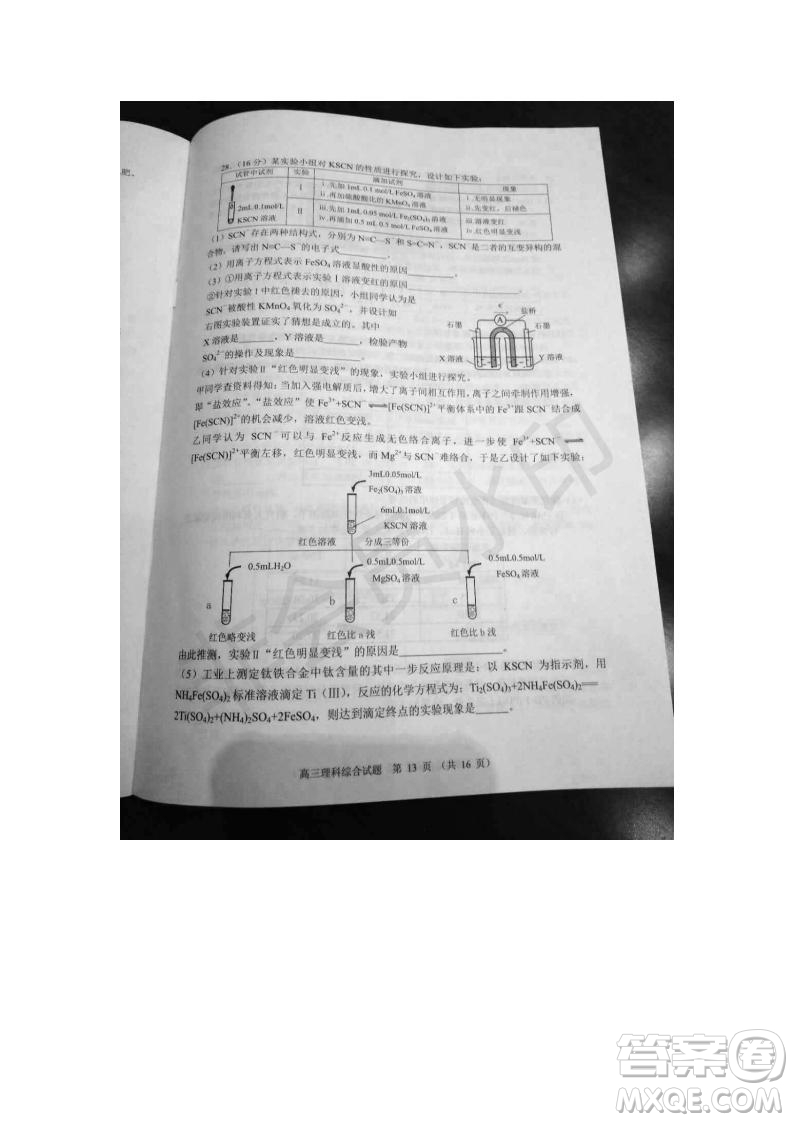 肥、
28.（16 分）某实验小组对 KSCN 的性质进行探究，设计如下实验：
试管中试剂 实验 滴加试剂 现象
2mL0.1mol/L KSCN 溶液
Ⅰ ⅰ.先加 1mL0.1 mol/L FeSO₄ 溶液 ⅰ.无明显现象
ⅱ.再加硫酸酸化的 KMnO₄ 溶液 ⅱ.先变红，后褪色
Ⅱ ⅲ.先加 1mL 0.05 mol/L Fe₂(SO₄)₃ 溶液 ⅲ.溶液变红
ⅳ.再滴加 0.5 mL 0.5 mol/L FeSO₄ 溶液 ⅳ.红色明显变浅
（1）SCN⁻存在两种结构式，分别为 N≡C—S⁻和 S=C=N⁻，SCN⁻是二者的互变异构的混
合物，请写出 N≡C—S⁻的电子式______。
（2）用离子方程式表示 FeSO₄ 溶液显酸性的原因______
（3）①用离子方程式表示实验Ⅰ溶液变红的原因______。
②针对实验Ⅰ中红色褪去的原因，小组同学认为是
SCN⁻被酸性 KMnO₄ 氧化为 SO₄²⁻，并设计如
右图实验装置证实了猜想是成立的。其中
X 溶液是______，Y 溶液是______，检验产物
SO₄²⁻的操作及现象是______。
e⁻
A
盐桥
石墨
石墨
X 溶液
Y 溶液
（4）针对实验Ⅱ“红色明显变浅”的现象，实验小组进行探究。
甲同学查资料得知：当加入强电解质后，增大了离子间相互作用，离子之间牵制作用增强，
即“盐效应”。“盐效应”使 Fe³⁺+SCN⁻⇌[Fe(SCN)]²⁺平衡体系中的 Fe³⁺跟 SCN⁻结合成
[Fe(SCN)]²⁺的机会减少，溶液红色变浅。
乙同学认为 SCN⁻可以与 Fe²⁺反应生成无色络合离子，进一步使 Fe³⁺+SCN⁻⇌
[Fe(SCN)]²⁺平衡左移，红色明显变浅，而 Mg²⁺与 SCN⁻难络合，于是乙设计了如下实验：
3mL0.05mol/L
Fe₂(SO₄)₃ 溶液
6mL0.1mol/L
KSCN 溶液
红色溶液 分成三等份
0.5mLH₂O
0.5mL0.5mol/L
MgSO₄ 溶液
0.5mL0.5mol/L
FeSO₄ 溶液
a b c
红色略变浅 红色比 a 浅 红色比 b 浅
由此推测，实验Ⅱ“红色明显变浅”的原因是______。
（5）工业上测定钛铁合金中钛含量的其中一步反应原理是：以 KSCN 为指示剂，用
NH₄Fe(SO₄)₂ 标准溶液滴定 Ti（Ⅲ），反应的化学方程式为：Ti₂(SO₄)₃+2NH₄Fe(SO₄)₂═
2Ti(SO₄)₂+(NH₄)₂SO₄+2FeSO₄，则达到滴定终点的实验现象是______。
高三理科综合试题 第 13 页 （共 16 页）
会员水印
答案圈
MXQE.COM